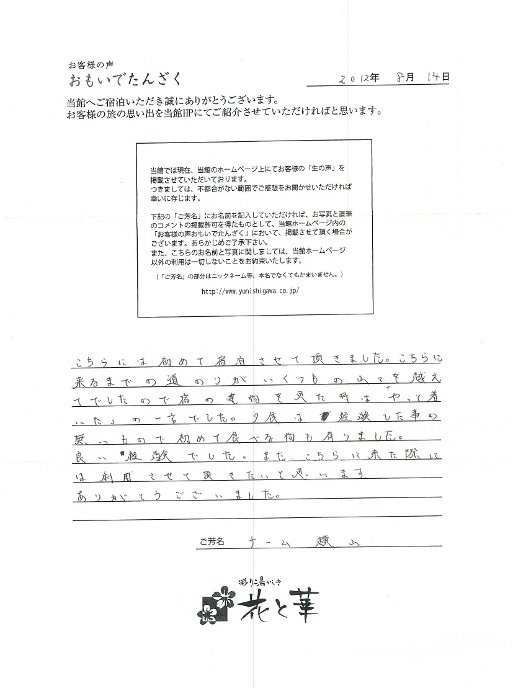 お客様の声
おもいでたんざく
2012年 8月 14日
当館へご宿泊いただき誠にありがとうございます。
お客様の旅の思い出を当館HPにてご紹介させていただければと思います。
当館では現在、当館のホームページ上にてお客様の「生の声」を
掲載させていただいております。
つきましては、不都合がない範囲でご感想をお聞かせいただければ
幸いに存じます。
下記の「ご芳名」にお名前を記入していただければ、お写真と直筆
のコメントの掲載許可を得たものとして、当館ホームページ内の
「お客様の声おもいでたんざく」において、掲載させて頂く場合が
ございます。あらかじめご了承下さい。
また、こちらのお名前と写真に関しましては、当館ホームページ
以外の利用は一切しないことをお約束いたします。
(「ご芳名」の部分はニックネーム等、本名でなくてもかまいません。)
http://www.yunishigawa.co.jp/
こちらには初めて宿泊させて頂きました。こちらに
来るまでの道のりがいくつもの山々を越え
てでしたので宿の建物を見た時は「やっと着
いた」の一言でした。夕食は経験した事の
無いもので初めて食べた物も有りました。
良い経験でした。また、こちらに来た際に
は利用させて頂きたいと思います
ありがとうございました。
ご芳名 チーム 横山
彩り湯かしき
花と華